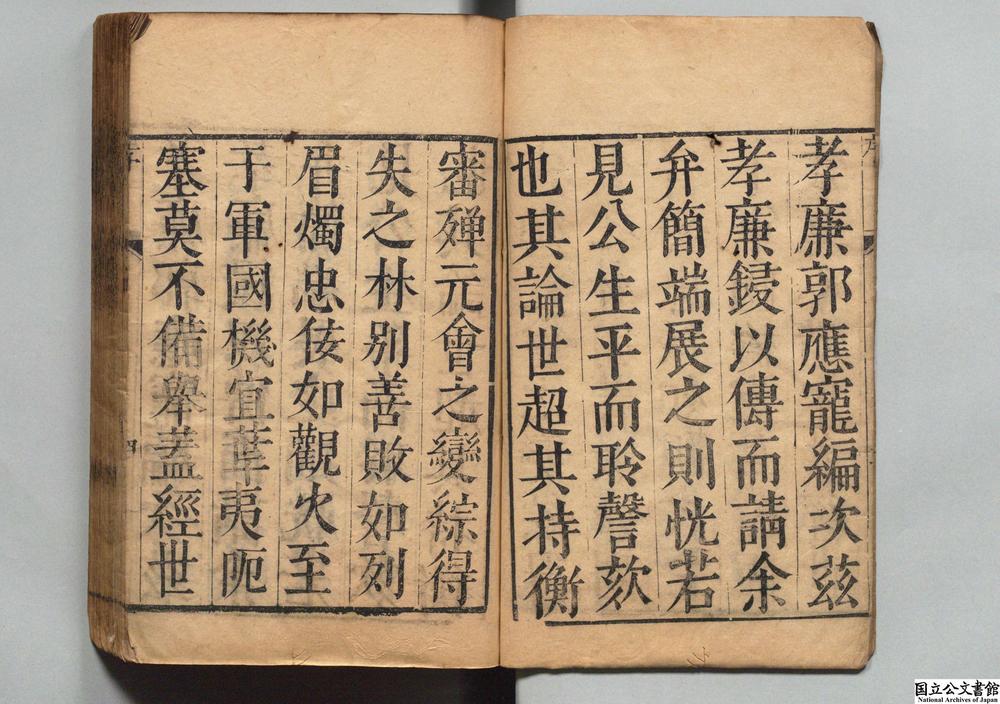 孝廉郭應寵編次茲
孝廉鋟以傳而請余
弁簡端展之則恍若
見公生平而聆謦欬
也其論世超其持衡
審殫元會之變綜得
失之林別善敗如列
眉燭忠佞如觀火至
于軍國機宜華夷阨
塞莫不備舉蓋經世
序
四
国立公文書館
National Archives of Japan